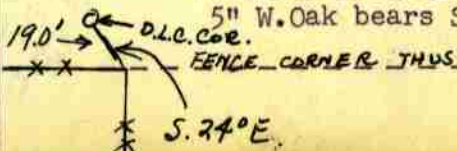 5" W.Oak bears S
19.0' D.L.C. COR.
FENCE CORNER THUS
S. 24° E.